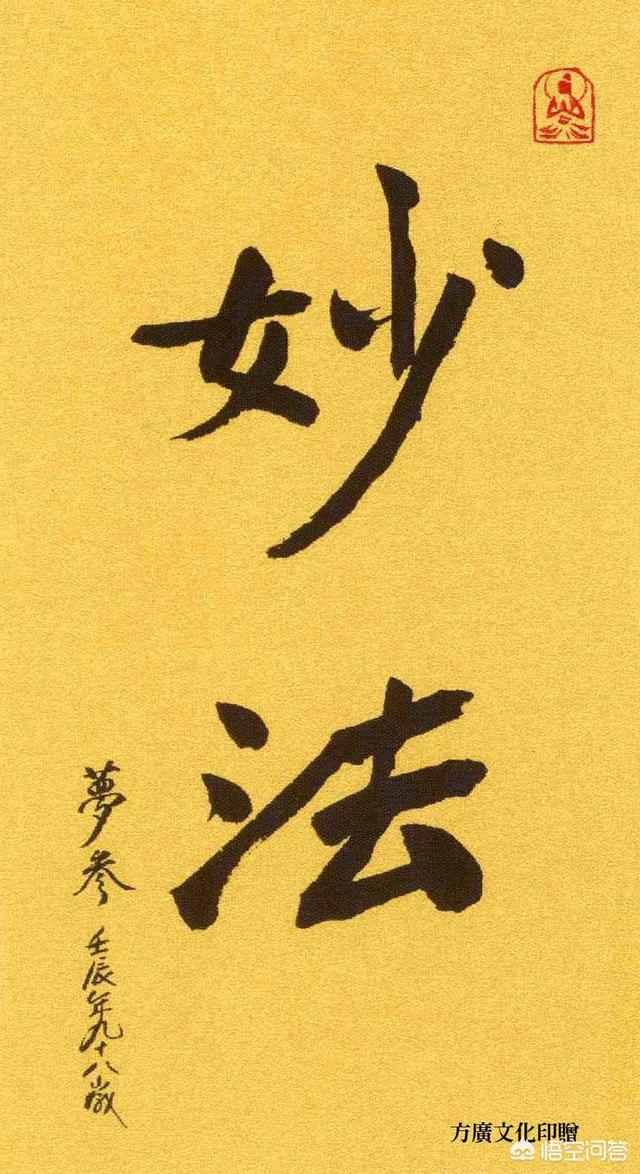 妙法
夢參 壬辰年九十八歲
方廣文化印贈
悟空问答